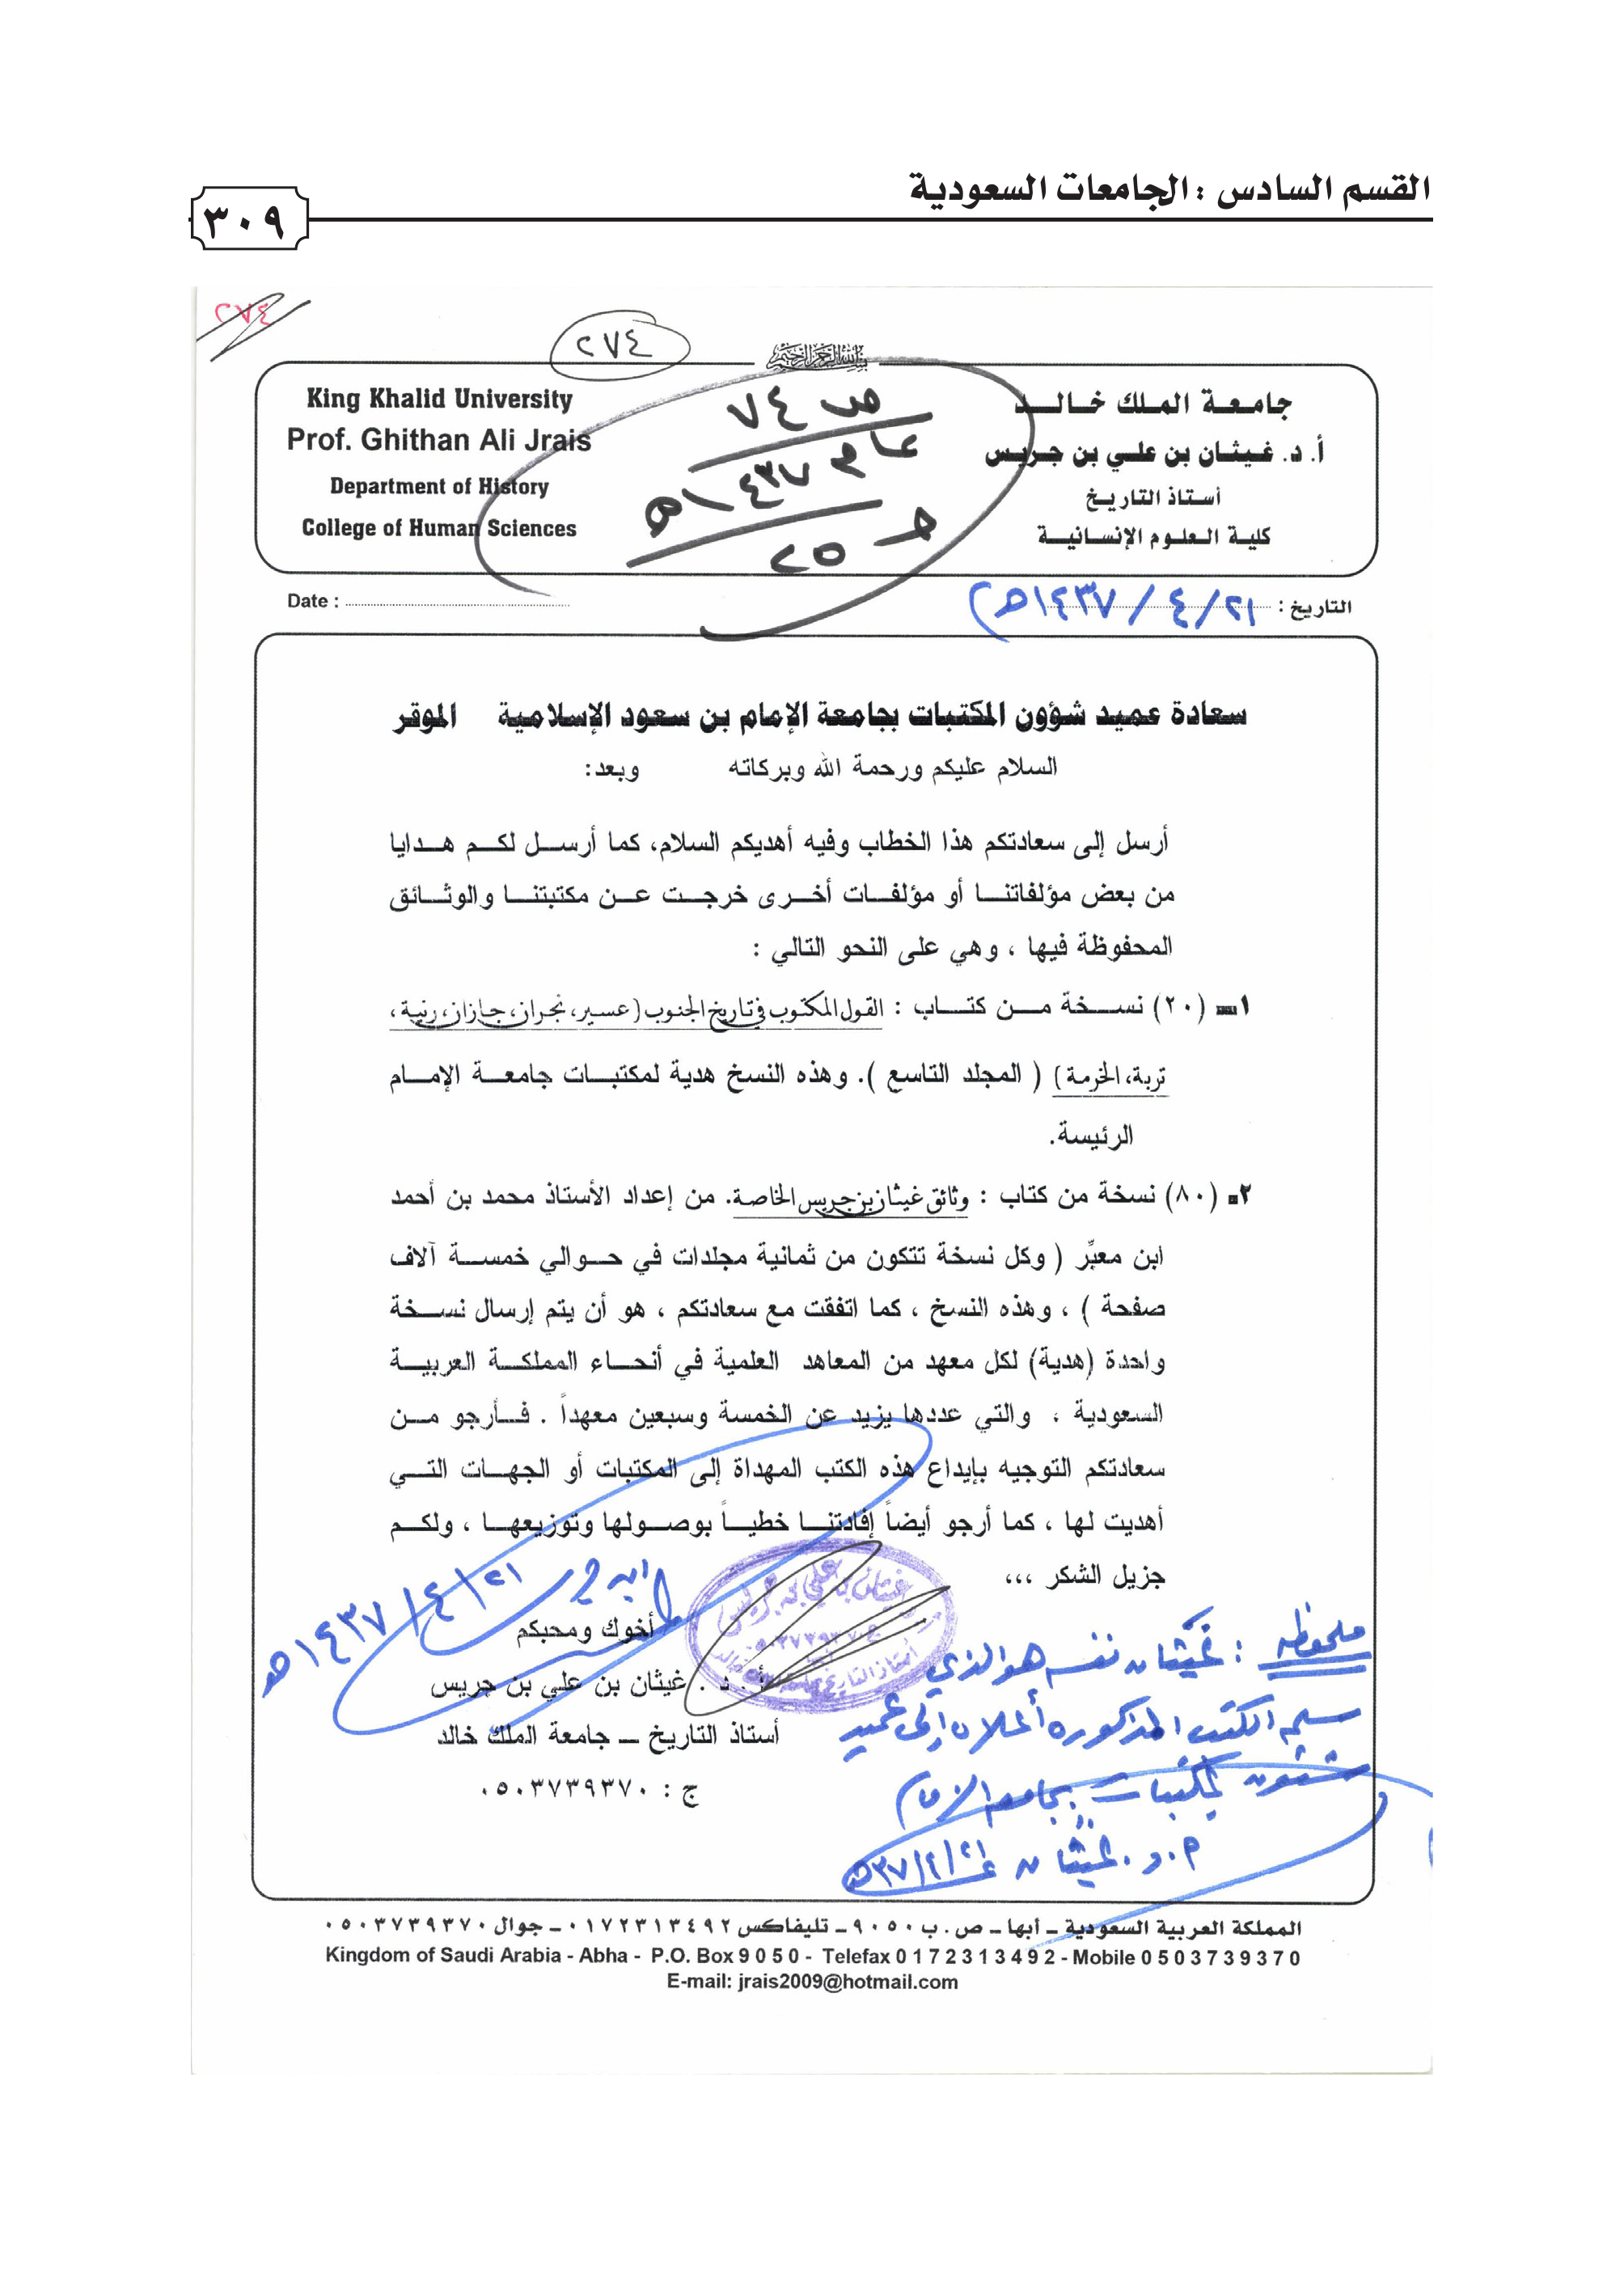 القسم السادس : الجامعات السعودية
٣٠٩
٢٧٤
٢٧٤
بسم الله الرحمن الرحيم
King Khalid University
Prof. Ghithan Ali Jrais
Department of History
College of Human Sciences
جامعة الملك خالد
أ. د. غيثان بن علي بن جريس
أستاذ التاريخ
كلية العلوم الإنسانية
ص ٧٤
عام ١٤٣٧هـ
حـ ٢٥
Date :
التاريخ : ٢١ / ٤ / ١٤٣٧هـ
سعادة عميد شؤون المكتبات بجامعة الإمام بن سعود الإسلامية الموقر
السلام عليكم ورحمة الله وبركاته وبعد:
أرسل إلى سعادتكم هذا الخطاب وفيه أهديكم السلام، كما أرسل لكم هدايا
من بعض مؤلفاتنا أو مؤلفات أخرى خرجت عن مكتبتنا والوثائق
المحفوظة فيها ، وهي على النحو التالي :
١ـ (٢٠) نسخة من كتاب : القول المكتوب في تاريخ الجنوب (عسير، نجران، جازان، رنية،
تربة، الخرمة) ( المجلد التاسع ). وهذه النسخ هدية لمكتبات جامعة الإمام
الرئيسة.
٢ـ (٨٠) نسخة من كتاب : وثائق غيثان بن جريس الخاصة. من إعداد الأستاذ محمد بن أحمد
ابن معبِّر ( وكل نسخة تتكون من ثمانية مجلدات في حوالي خمسة آلاف
صفحة ) ، وهذه النسخ ، كما اتفقت مع سعادتكم ، هو أن يتم إرسال نسخة
واحدة (هدية) لكل معهد من المعاهد العلمية في أنحاء المملكة العربية
السعودية ، والتي عددها يزيد عن الخمسة وسبعين معهداً . فأرجو من
سعادتكم التوجيه بإيداع هذه الكتب المهداة إلى المكتبات أو الجهات التي
أهديت لها ، كما أرجو أيضاً إفادتنا خطياً بوصولها وتوزيعها ، ولكم
جزيل الشكر ،،،
٢١ / ٤ / ١٤٣٧هـ
أخوك ومحبكم
أ. د . غيثان بن علي بن جريس
أستاذ التاريخ ــ جامعة الملك خالد
ج : ٠٥٠٣٧٣٩٣٧٠
ملحوظة : غيثان نفسه هو الذي
سلم الكتب المذكورة أعلاه إلى عميد
شئون المكتبات بجامعة الإمام
المملكة العربية السعودية ــ أبها ــ ص. ب ٩٠٥٠ ــ تليفاكس ٠١٧٢٣١٣٤٩٢ ــ جوال ٠٥٠٣٧٣٩٣٧٠
Kingdom of Saudi Arabia - Abha - P.O. Box 9050 - Telefax 0172313492 - Mobile 0503739370
E-mail: jrais2009@hotmail.com